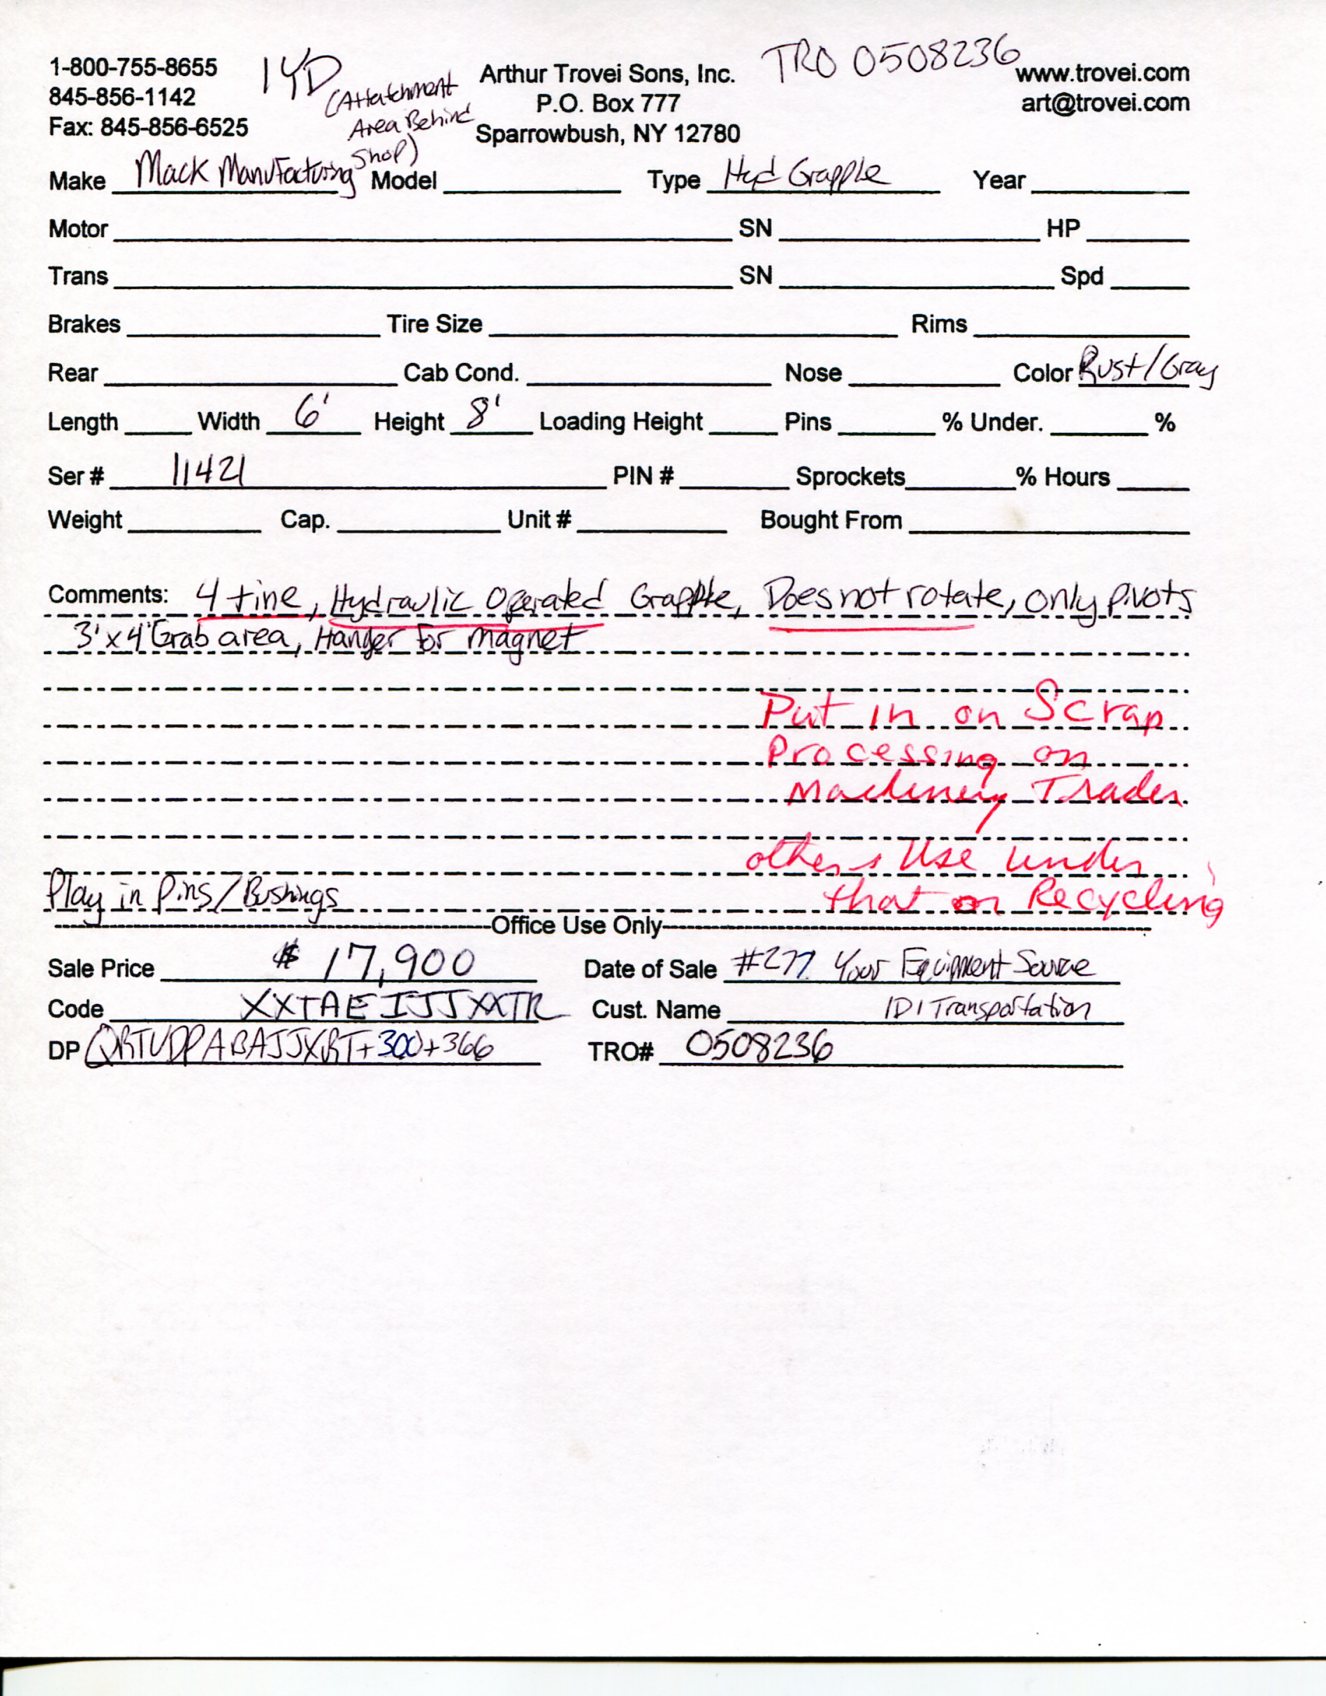 1-800-755-8655 1YD Arthur Trovei Sons, Inc. TRO 0508236 www.trovei.com
845-856-1142 (Attatchment P.O. Box 777 art@trovei.com
Fax: 845-856-6525 Area Behind Sparrowbush, NY 12780
Shop)
Make Mack Manufacturing Model Type Hyd Grapple Year
Motor SN HP
Trans SN Spd
Brakes Tire Size Rims
Rear Cab Cond. Nose Color Rust/Gray
Length Width 6' Height 8' Loading Height Pins % Under. %
Ser # 11421 PIN # Sprockets % Hours
Weight Cap. Unit # Bought From
Comments: 4 tine, Hydraulic Operated Grapple, Does not rotate, only pivots
3'x4' Grab area, Hanger for magnet
Put in on Scrap
Processing on
Machinery Trader
others Use under
that on Recycling
Play in Pins/Bushings
Office Use Only
Sale Price $ 17,900 Date of Sale #277 Your Equipment Source
Code XXTAEIJJXXTR Cust. Name IDI Transportation
DP QRTUDPABAJJXRT+300+366 TRO# 0508236